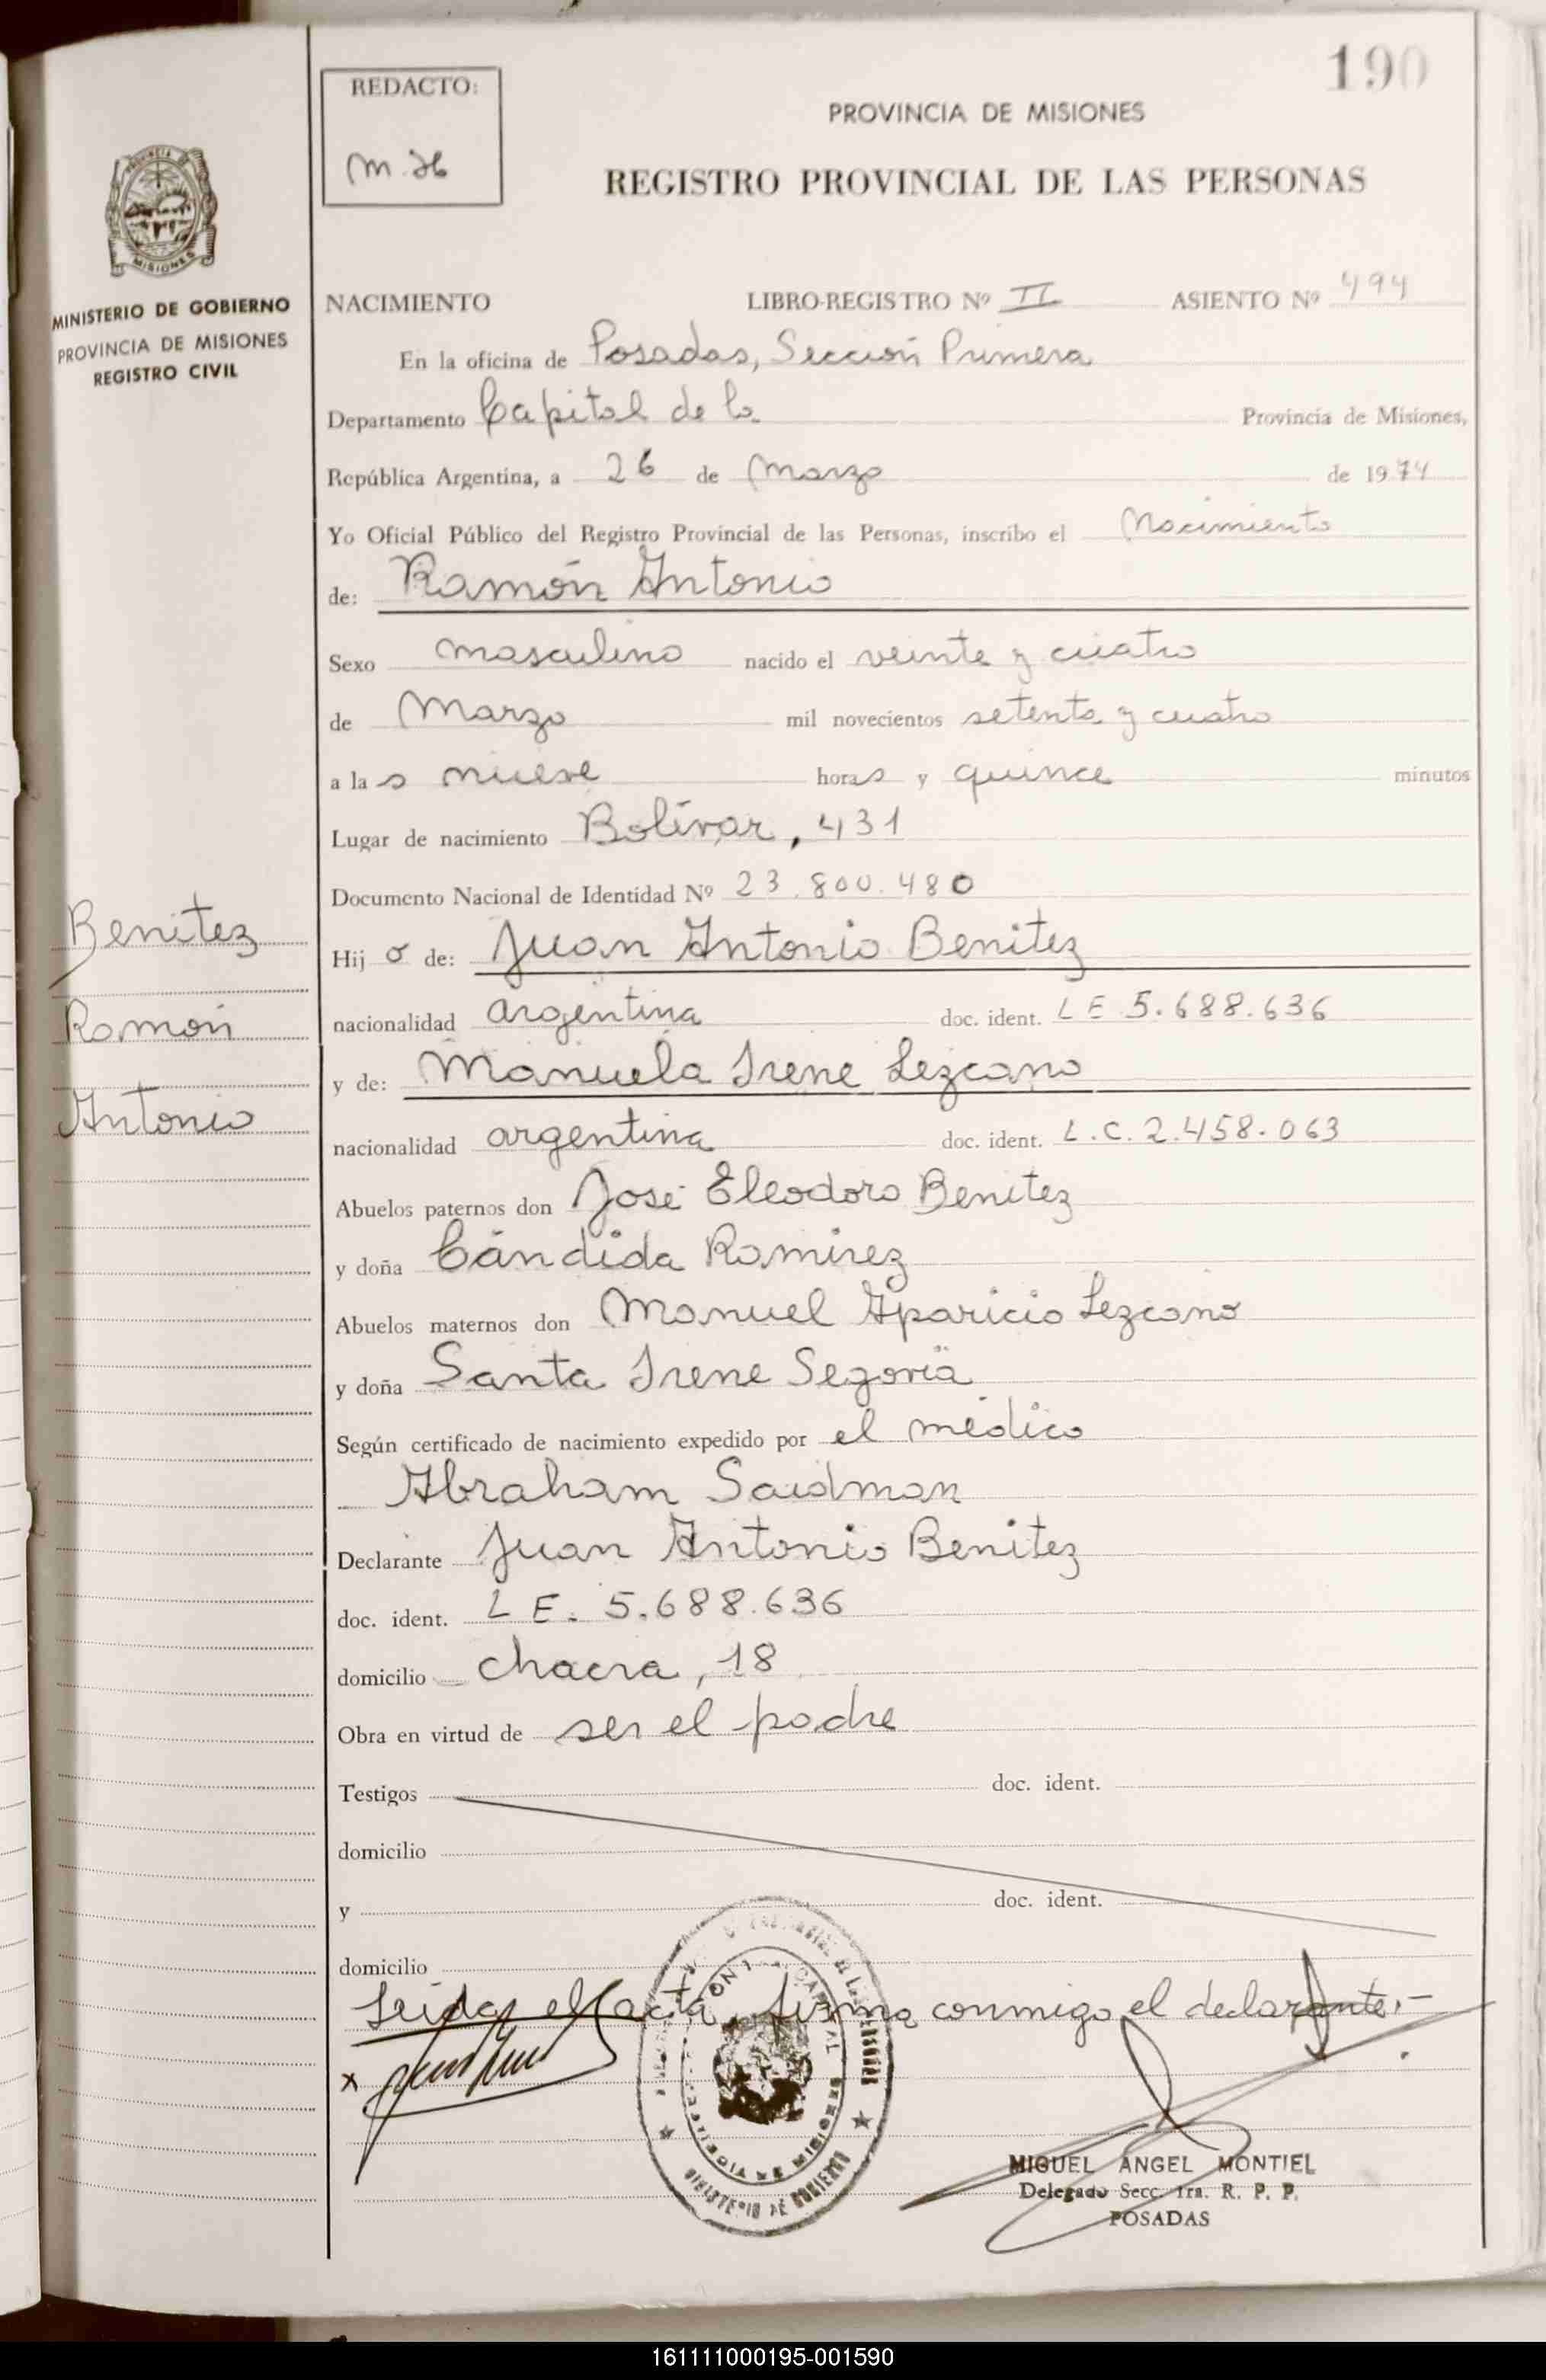 190
REDACTO:
PROVINCIA DE MISIONES
REGISTRO PROVINCIAL DE LAS PERSONAS
MISIONES
MINISTERIO DE GOBIERNO
PROVINCIA DE MISIONES
REGISTRO CIVIL
NACIMIENTO LIBRO-REGISTRO Nº II ASIENTO Nº 494
En la oficina de Posadas, Sección Primera
Departamento Capital de la Provincia de Misiones,
República Argentina, a 26 de Marzo de 1974
Yo Oficial Público del Registro Provincial de las Personas, inscribo el Nacimiento
de: Ramón Antonio
Sexo masculino nacido el veinte y cuatro
de Marzo mil novecientos setenta y cuatro
a las nueve horas y quince minutos
Lugar de nacimiento Bolívar, 431
Documento Nacional de Identidad Nº 23.800.480
Benitez
Ramón
Antonio
Hijo de: Juan Antonio Benitez
nacionalidad argentina doc. ident. LE 5.688.636
y de: Manuela Irene Lezcano
nacionalidad argentina doc. ident. L.C. 2.458.063
Abuelos paternos don José Eleodoro Benitez
y doña Cándida Ramirez
Abuelos maternos don Manuel Aparicio Lezcano
y doña Santa Irene Segovia
Según certificado de nacimiento expedido por el médico
Abraham Saidman
Declarante Juan Antonio Benitez
doc. ident. L E. 5.688.636
domicilio chacra, 18
Obra en virtud de ser el padre
Testigos doc. ident.
domicilio
y doc. ident.
domicilio
Leida el acta, firma conmigo el declarante.-
x
MINISTERIO DE GOBIERNO
MIGUEL ANGEL MONTIEL
Delegado Secc. 1ra. R. P. P.
POSADAS
161111000195-001590